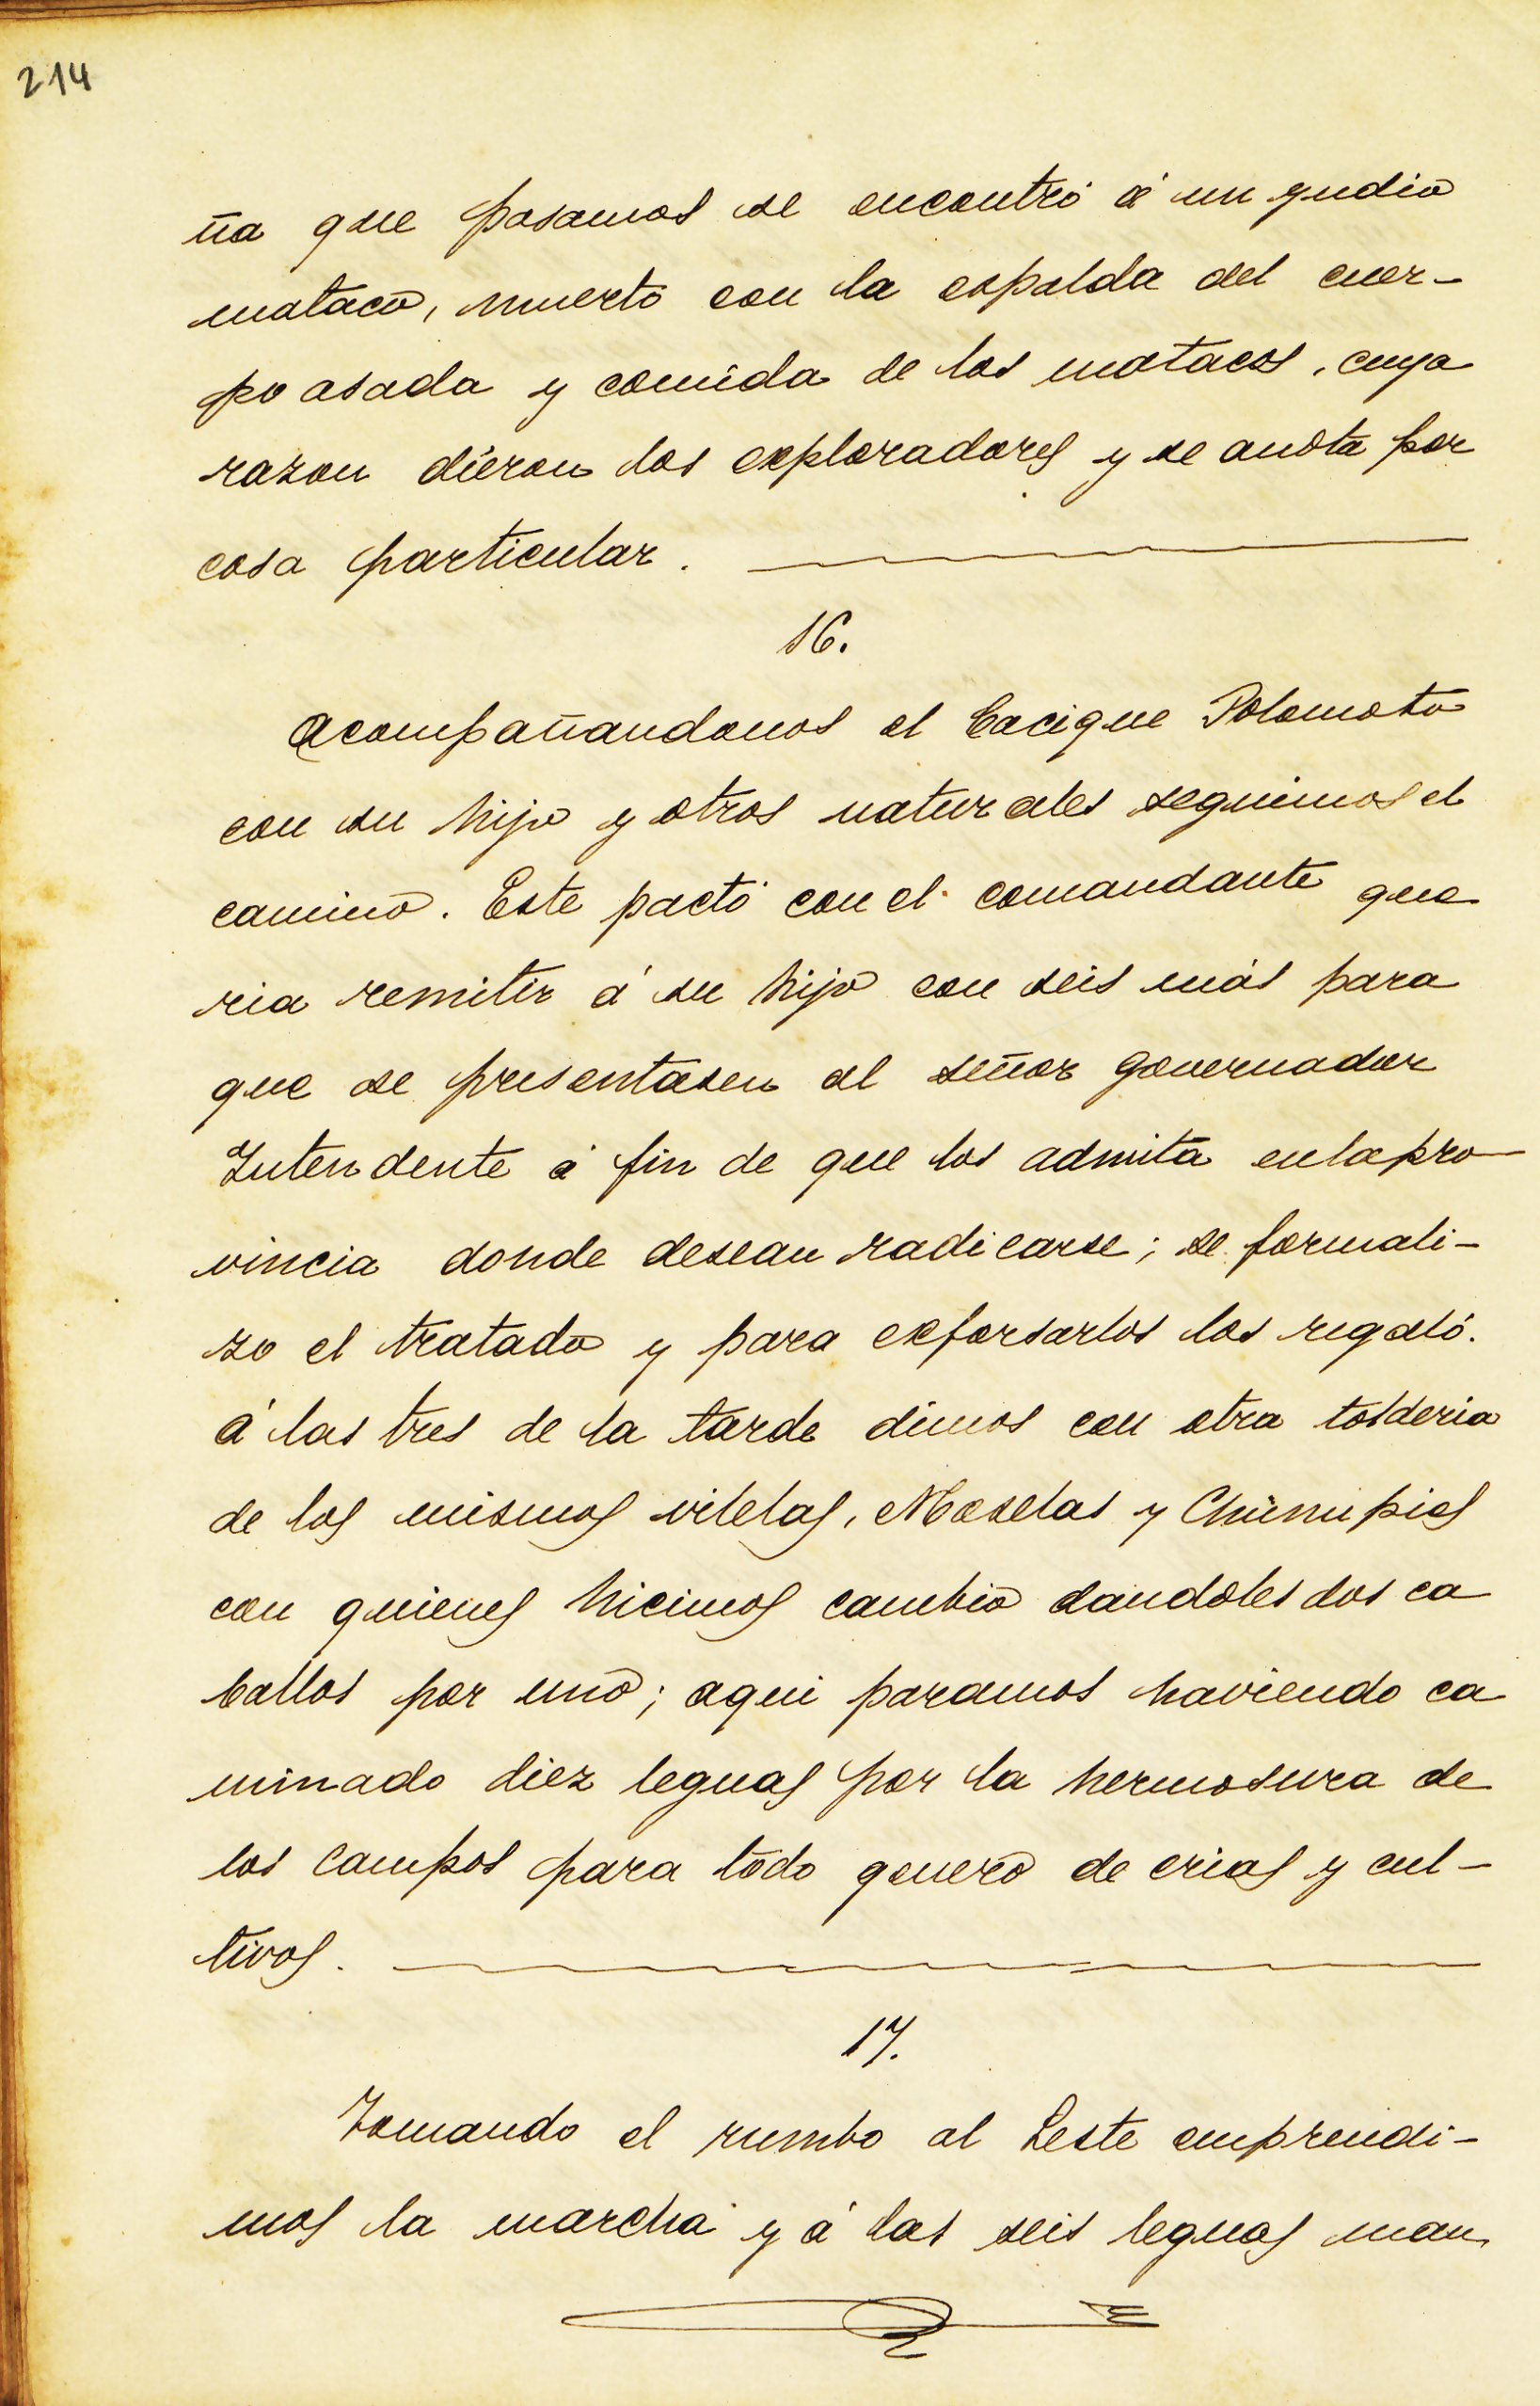 214
ña que pasamos se encontró á un yndio
mataco, muerto con la espalda del cuer-
po asada y comida de los matacos, cuya
razon dieron los exploradores y se anota por
cosa particular.
16.
Acompañandonos el Cacique Polomoto
con su hijo y otros naturales seguimos el
camino. Este pactó con el comandante que
ria remitir á su hijo con seis más para
que se presentasen al señor Governador
Intendente á fin de que los admita en la pro-
vincia donde desean radicarse; se formali-
zo el tratado y para exforsarlos los regaló.
á las tres de la tarde dimos con otra tolderia
de los mismos vilelas, Maselas y Chunupies
con quienes hicimos cambio dandoles dos ca
ballos por uno; aqui paramos haviendo ca
minado diez leguas por la hermosura de
los campos para todo genero de crias y cul-
tivos.
17.
Tomando el rumbo al Leste emprendi-
mos la marcha y á las seis leguas man